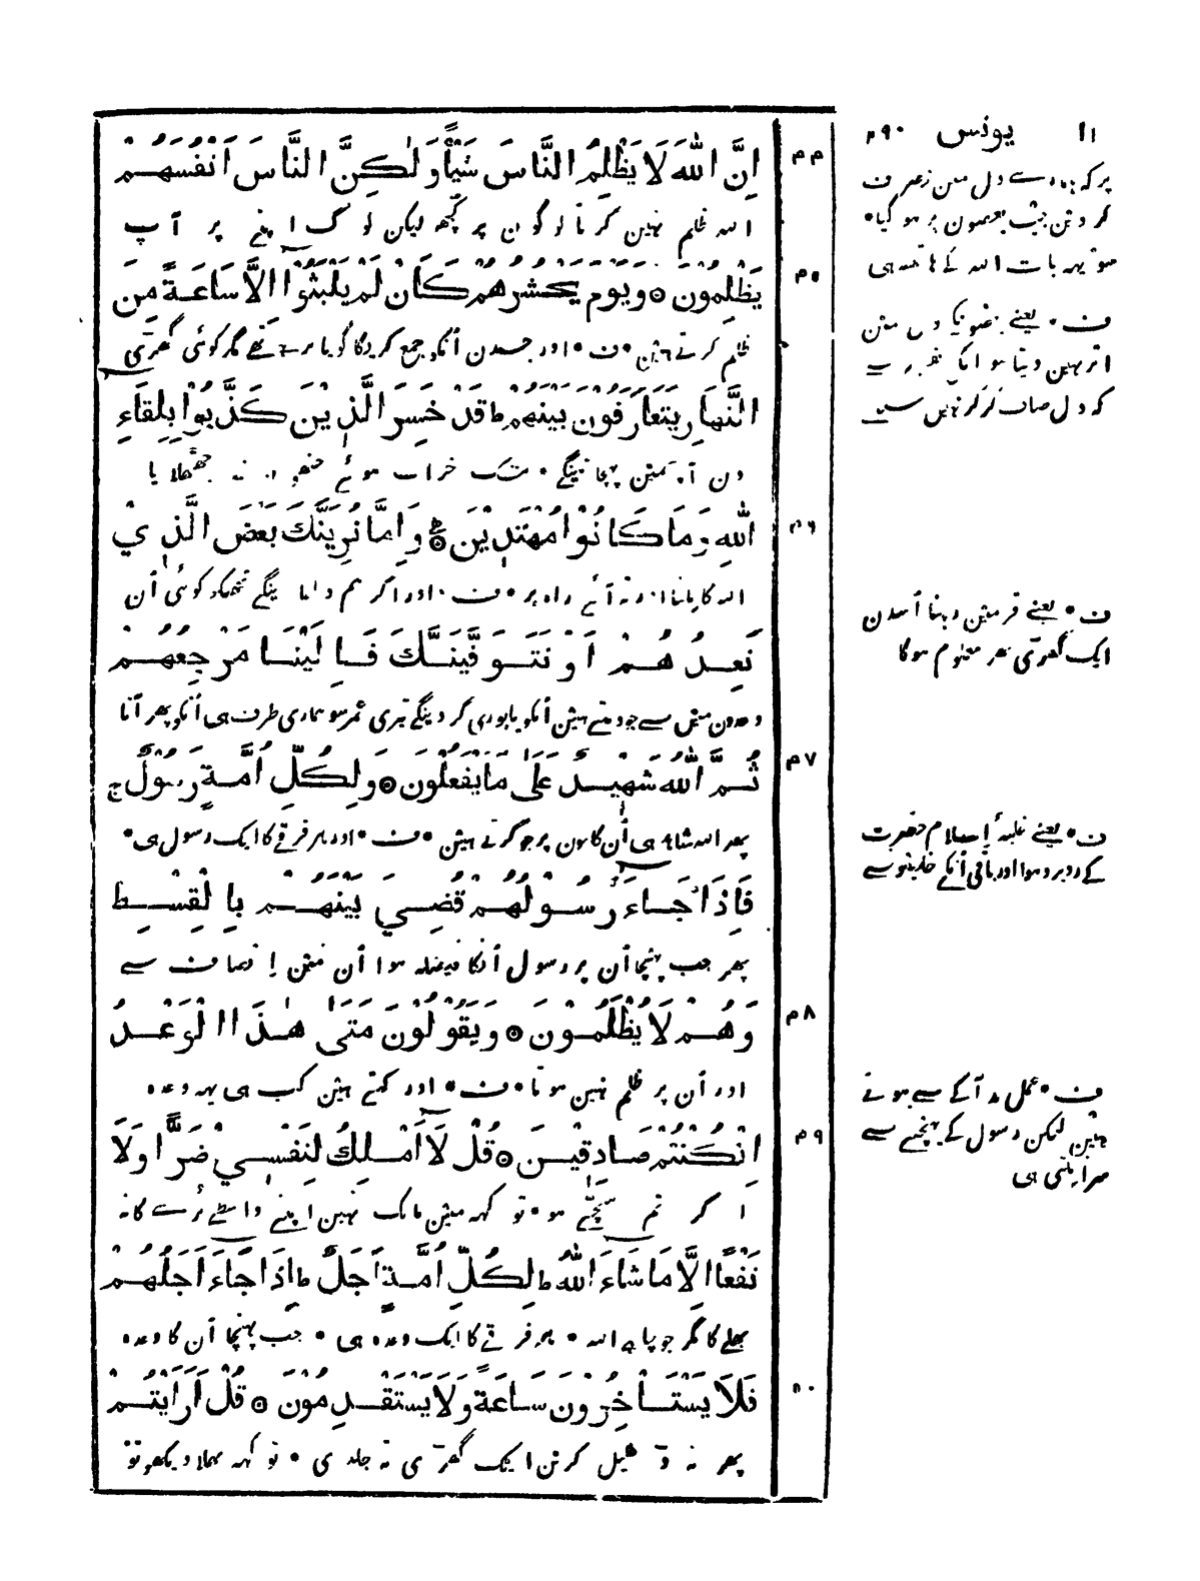 ۱۱ يونس ۴۹۰
اِنَّ اللّٰهَ لَا يَظْلِمُ النَّاسَ شَيْـًٔا وَّلٰكِنَّ النَّاسَ اَنْفُسَهُمْ ۴۴
الله ظلم نہین کرتا لوگون پر کچھ لیکن لوگ اپنے پر آپ
يَظْلِمُوْنَ ۞ وَيَوْمَ يَحْشُرُهُمْ كَاَنْ لَّمْ يَلْبَثُوْا اِلَّا سَاعَةً مِّنَ ۴۵
ظلم کرتے ہین • ف • اور جسدن اُنکو جمع کریگا گویا نرہے تھے مگر کوئی گھڑی
النَّهَارِ يَتَعَارَفُوْنَ بَيْنَهُمْ ط قَدْ خَسِرَ الَّذِيْنَ كَذَّبُوْا بِلِقَاءِ
دن آپسمین پہچانینگے • بیشک خراب ہوئے جنھون نے جھٹلایا
اللّٰهِ وَمَا كَانُوْا مُهْتَدِيْنَ ۞ وَاِمَّا نُرِيَنَّكَ بَعْضَ الَّذِيْ ۴۶
الله کا ملنا اور نہ آئے راہ پر • ف • اور اگر ہم دکھاینگے تجھکو کوئی اُن
نَعِدُهُمْ اَوْ نَتَوَفَّيَنَّكَ فَاِلَيْنَا مَرْجِعُهُمْ
وعدون مین سے جو دیتے ہین اُنکو یا پوری کر دینگے تیری عمر سو ہماری طرف ہی اُنکو پھر آنا
ثُمَّ اللّٰهُ شَهِيْدٌ عَلٰى مَا يَفْعَلُوْنَ ۞ وَلِكُلِّ اُمَّةٍ رَّسُوْلٌ ج ۴۷
پھر الله شاہد ہی اُن کامون پر جو کرتے ہین • ف • اور ہر فرقے کا ایک رسول ہی •
فَاِذَا جَاءَ رَسُوْلُهُمْ قُضِيَ بَيْنَهُمْ بِالْقِسْطِ
پھر جب پہنچا اُن پر رسول اُنکا فیصلہ ہوا اُن مین اِنصاف سے
وَهُمْ لَا يُظْلَمُوْنَ ۞ وَيَقُوْلُوْنَ مَتٰى هٰذَا الْوَعْدُ ۴۸
اور اُن پر ظلم نہین ہوتا • ف • اور کہتے ہین کب ہی یہہ وعدہ
اِنْ كُنْتُمْ صَادِقِيْنَ ۞ قُلْ لَا اَمْلِكُ لِنَفْسِيْ ضَرًّا وَّلَا ۴۹
اگر تم سچّے ہو • تو کہہ مین مالک نہین اپنے واسطے بُرے کا نہ
نَفْعًا اِلَّا مَا شَاءَ اللّٰهُ ط لِكُلِّ اُمَّةٍ اَجَلٌ ط اِذَا جَاءَ اَجَلُهُمْ
بھلے کا مگر جو چاہے الله • ہر فرقے کا ایک وعدہ ہی • جب پہنچا اُن کا وعدہ
فَلَا يَسْتَأْخِرُوْنَ سَاعَةً وَّلَا يَسْتَقْدِمُوْنَ ۞ قُلْ اَرَاَيْتُمْ ۵۰
پھر نہ ڈھیل کرین ایک گھڑی نہ جلدی • تو کہہ بھلا دیکھو تو
کر دین جیسے بعضون پر ہو گیا •
سو یہہ بات الله کے ہاتھ ہی
ف • یعنے
اثر نہین دیتا ہو
کہ دل صاف کر کر نہین سنتے
ف • یعنے قبر مین رہنا اُسدن
ایک گھڑی بھر معلوم ہوگا
ف • یعنے غلبۂ اِسلام حضرت
کے روبرو ہوا اور باقی اُنکے خلیفو سے
ف • عمل بد آگے سے ہوتے
ہین لیکن رسول کے پہنچنے سے
سزا ملتی ہی